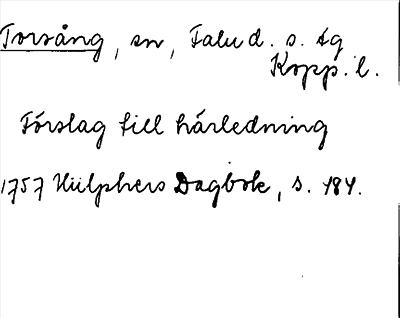 Torsång, sn, Falu d. s. tg
Kopp. l.
Förslag till härledning
1757 Hülphers Dagbok, s. 184.